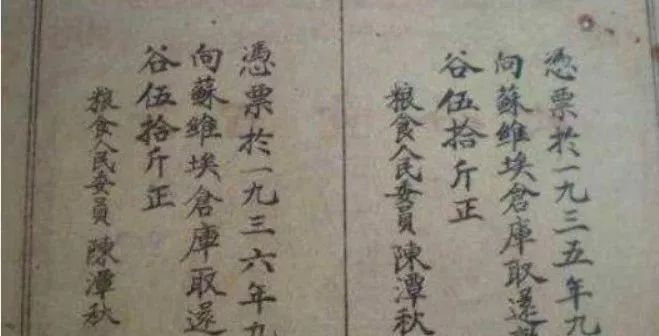 憑票於一九三五年九
向蘇維埃倉庫取還
谷伍拾斤正
粮食人民委員陳潭秋
憑票於一九三六年九
向蘇維埃倉庫取還
谷伍拾斤正
粮食人民委員陳潭秋